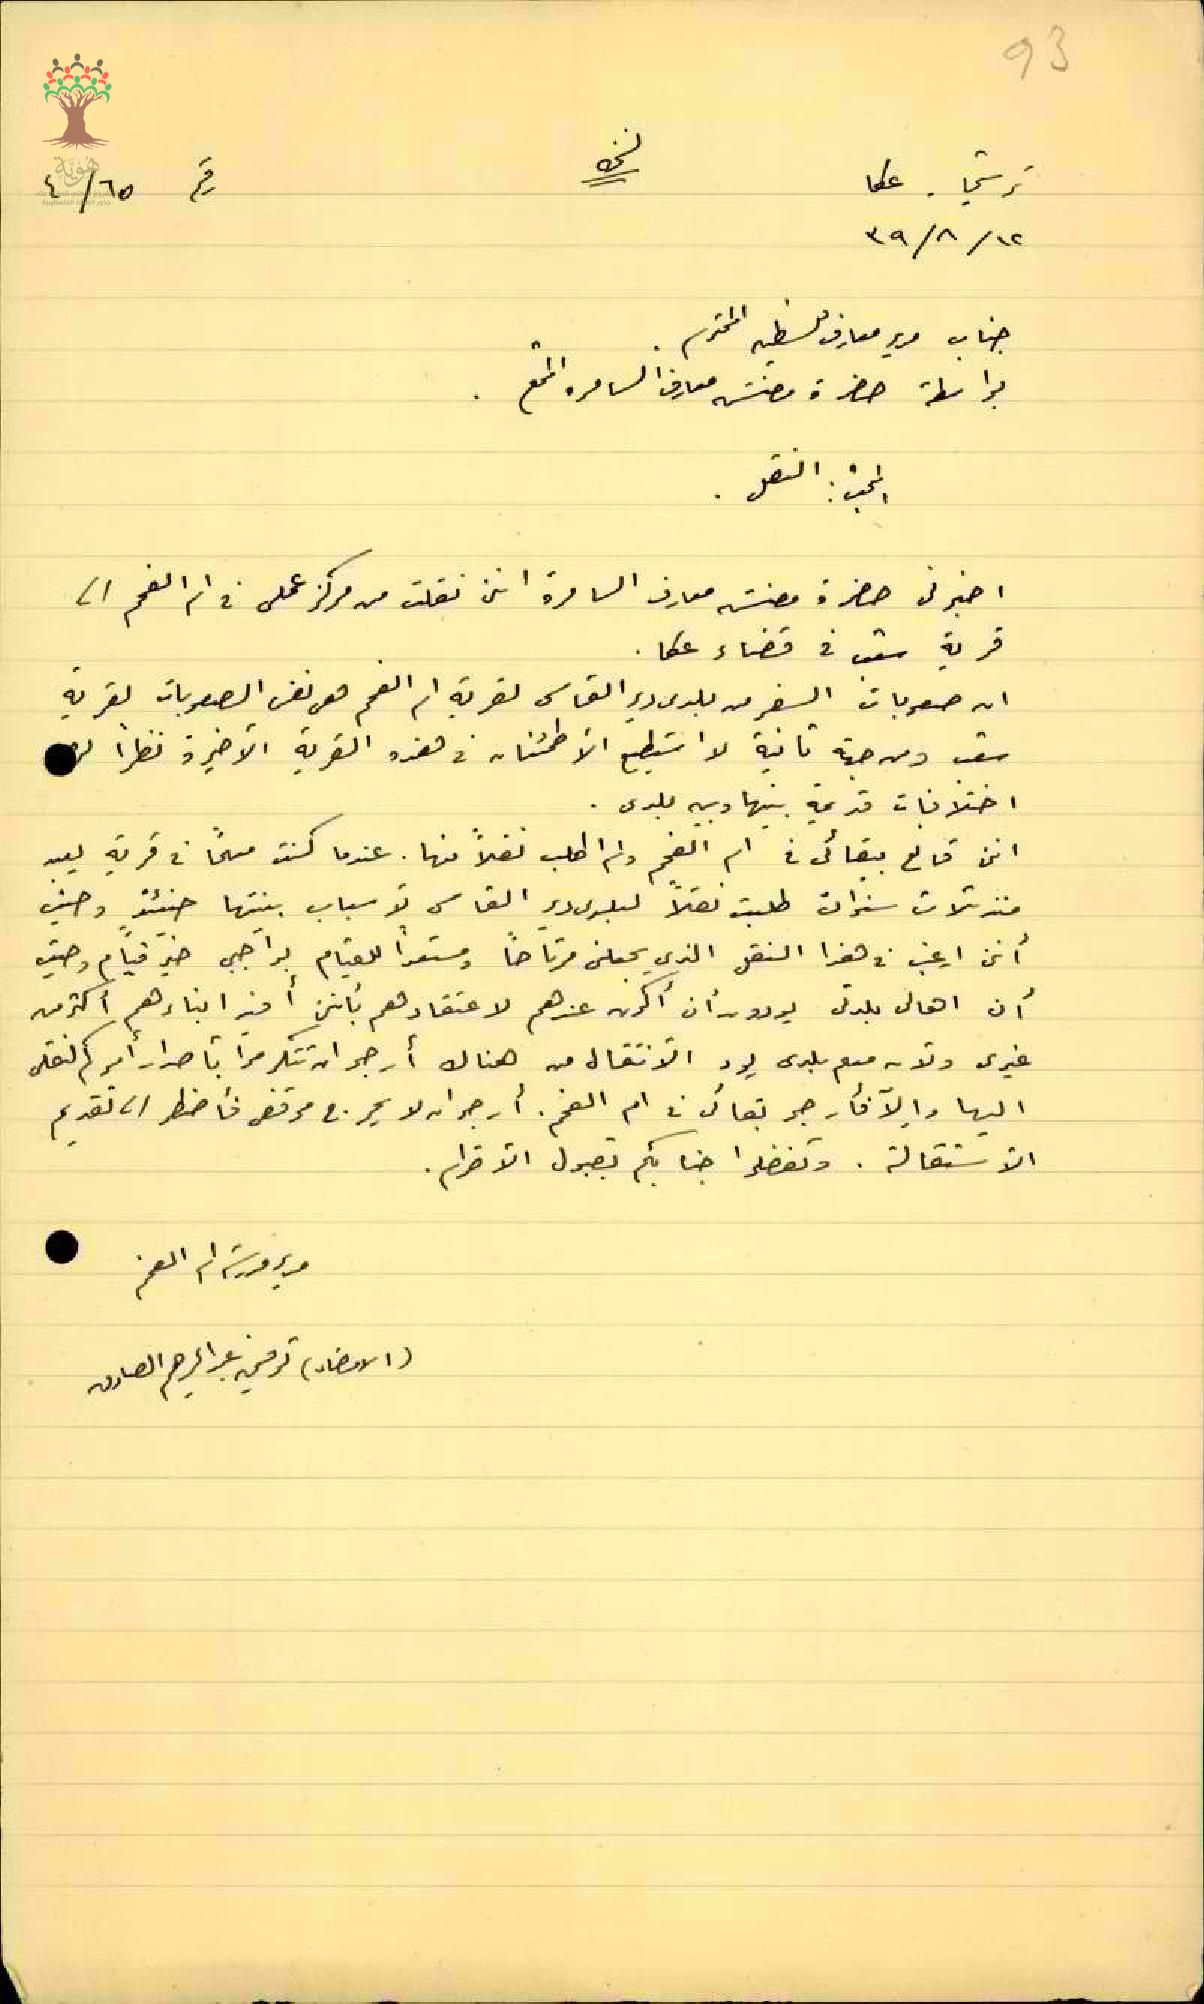 93
هوية
ترشيحا . عكا
نسخة
رقم ٤/٦٥
١٢/٨/٣٩
جناب مدير معارف فلسطين المحترم .
بواسطة حضرة مفتش معارف السامرة
المبحث : النقل .
اخبرني حضرة مفتش معارف السامرة انني نقلت من مركز عملي في ام الفحم الى
قرية سعب في قضاء عكا .
ان صعوبات السفر من بلدي دير القاسي لقرية ام الفحم هي نفس الصعوبات لقرية
سعب ومن جهة ثانية لا استطيع الأطمئنان في هذه القرية الأخيرة نظراً
اختلافات قديمة بينها وبين بلدي .
انني قانع ببقائي في ام الفحم ولم اطلب نقلاً منها . عندما كنت معلماً في قرية يعبد
منذ ثلاث سنوات طلبت نقلاً لبلدي دير القاسي لأسباب بينتها حينئذٍ وحيث
أنني ارغب في هذا النقل الذي يجعلني مرتاحاً ومستعداً للقيام بواجبي خير قيام وحيث
أن اهالي بلدتي يودون أن أكون عندهم لاعتقادهم بأنني أفيد ابناءهم أكثر من
غيري ولأن معلم بلدي يود الأنتقال من هناك أرجو ان تتكرموا بأصدار أمركم لنقلي
اليها وإلاّ فأرجو بقائي في ام الفحم . أرجو ان لا يحرج موقفي فأضطر الى تقديم
الأستقالة . وتفضلوا جنابكم بقبول الأحترام .
مدير مدرسة ام الفحم
(الامضاء) توفيق عبد الرحيم الصادق